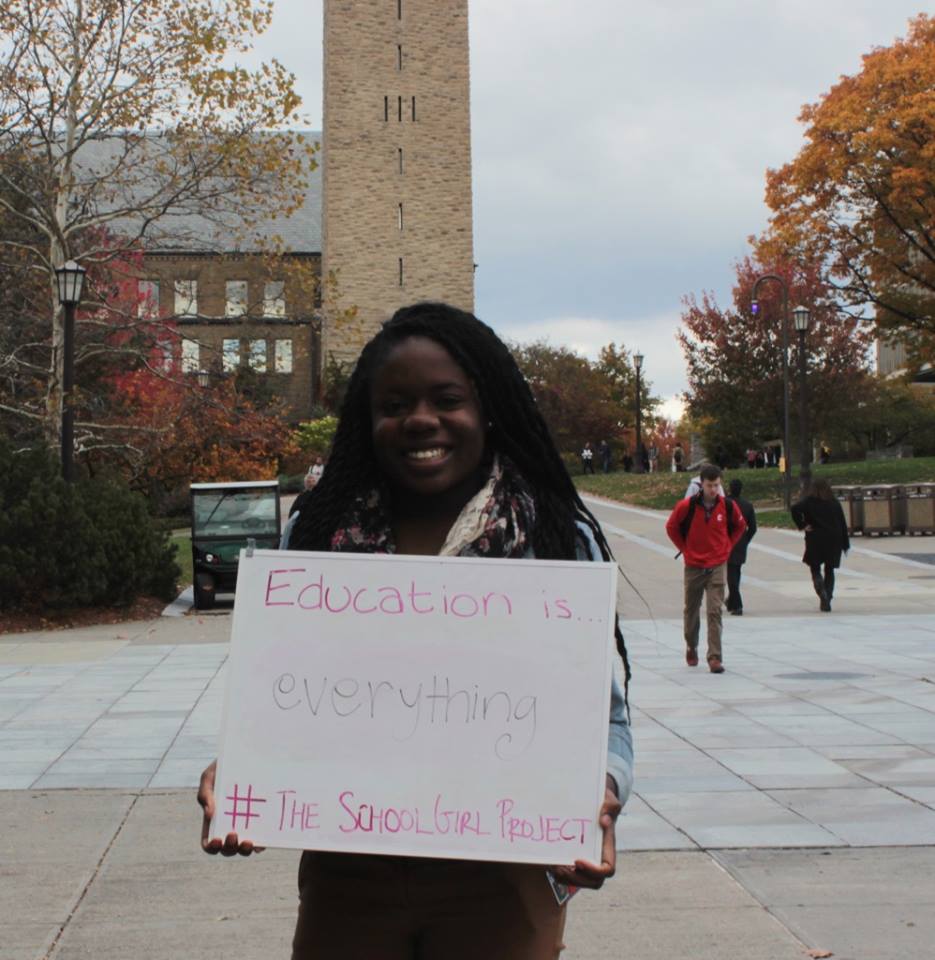 Education is...
everything
# THE SCHOOLGIRL PROJECT